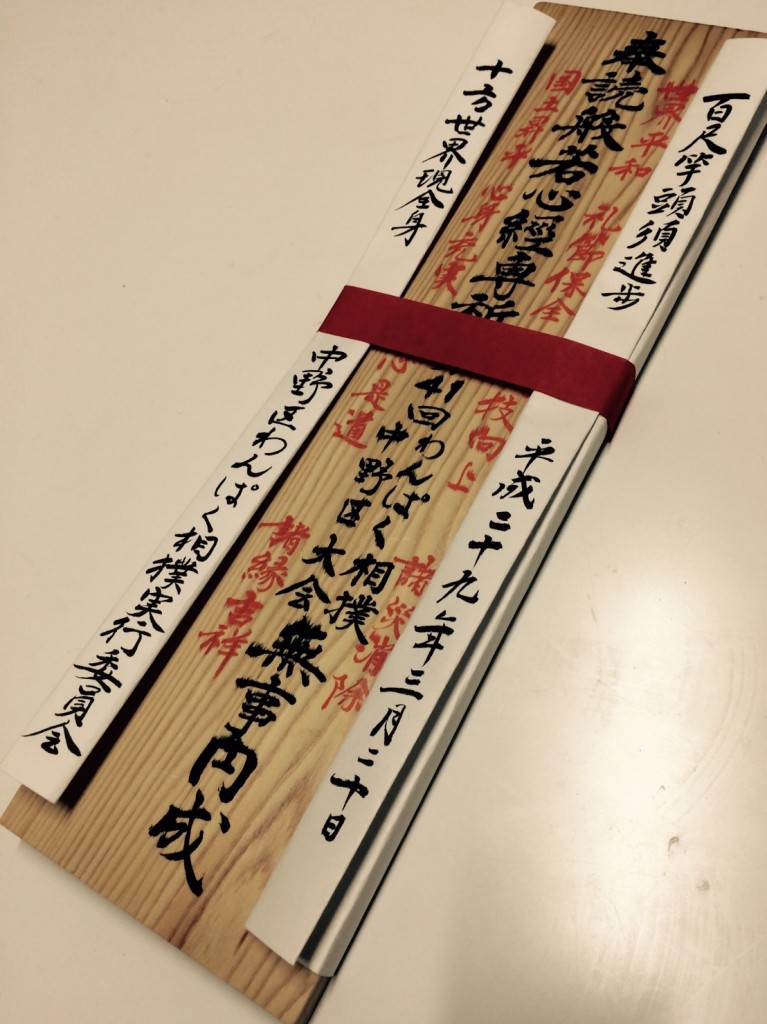 百尺竿頭須進歩
平成二十九年三月二十日
世界平和 礼節保全
技向上 諸災消除
奉読般若心經専祈
41回わんぱく相撲
中野区大会
無事円成
国土昇平 心身充実
心是道 諸縁吉祥
十方世界現全身
中野区わんぱく相撲実行委員会